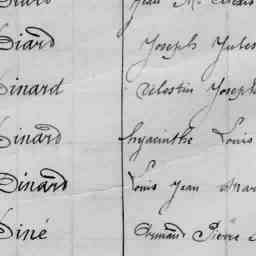 Jean M.
Siard Joseph Jules
Dinard Célestin Joseph
Dinard hyacinthe Louis
Dinard Louis Jean
Diné Armand Pierre